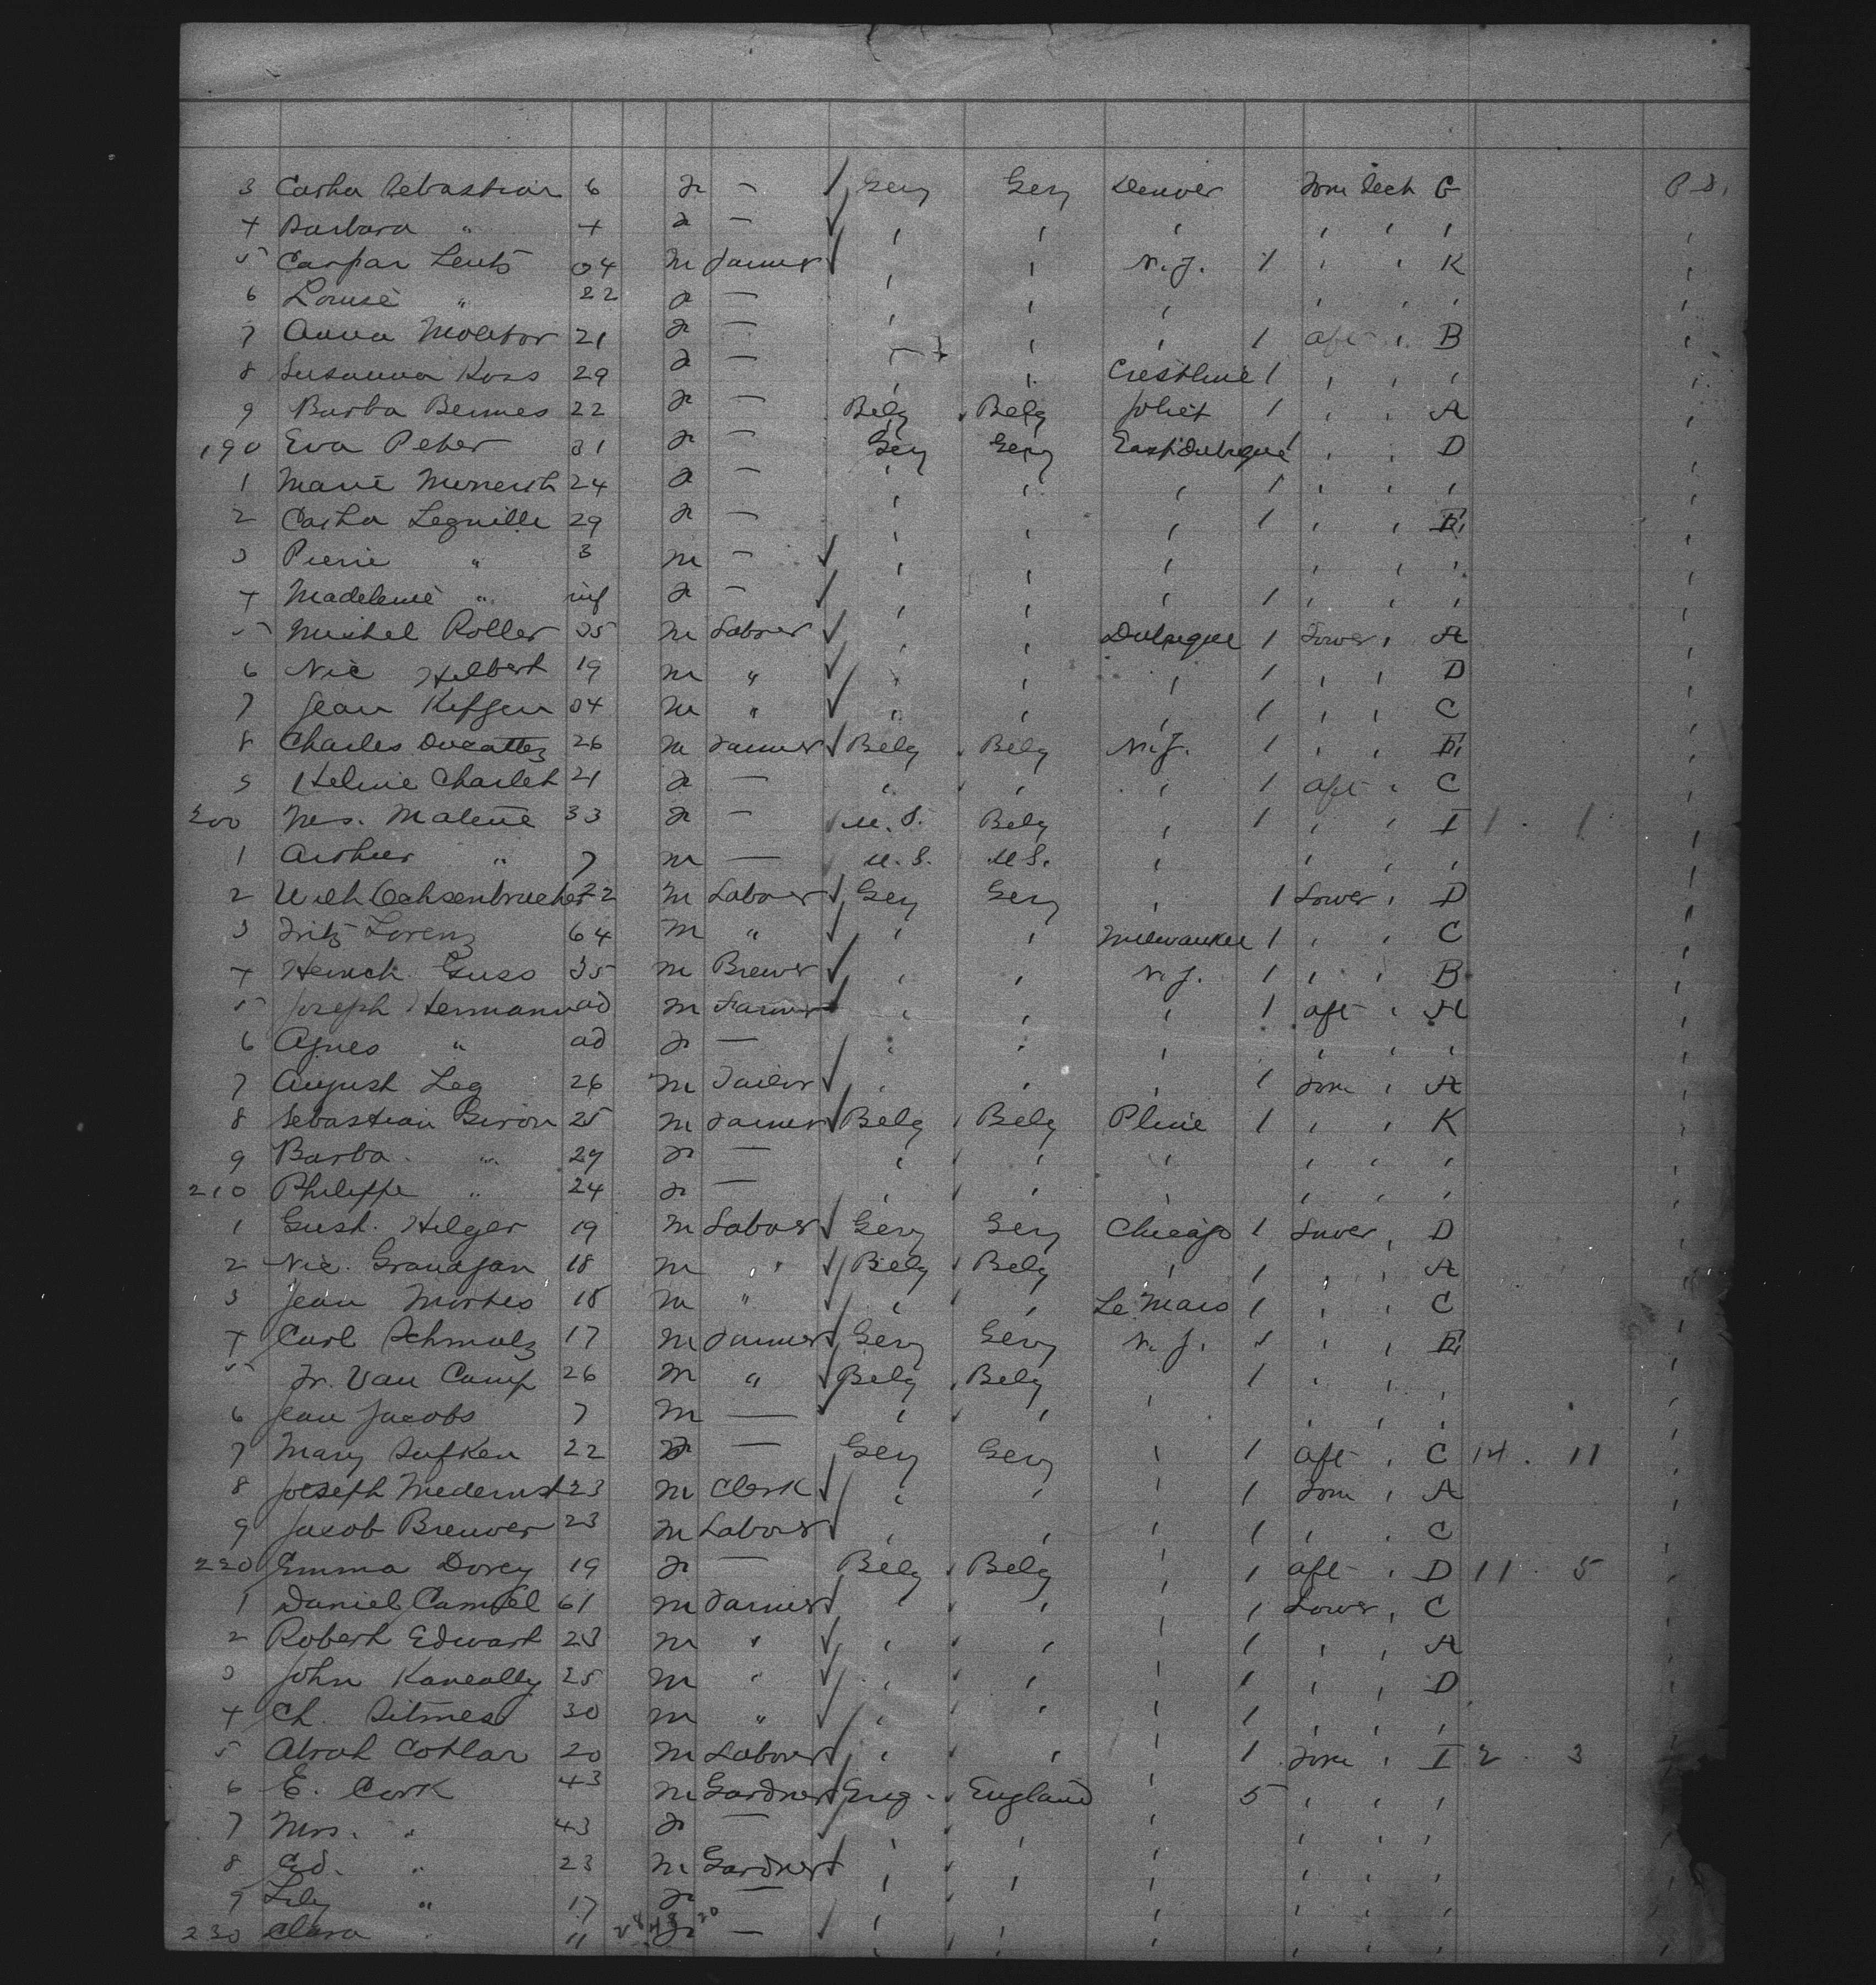 3 Catha Sebastian 6 F — Gery Gery Denver Fore deck G P.D.
4 Barbara " 4 F — ' ' ' ' ' ' '
5 Caspar Lentz 34 M Farmer ' ' N.Y. 1 ' ' K '
6 Louise " 22 F — ' ' ' ' ' ' '
7 Anna Molitor 21 F — ' ' 1 aft ' B '
8 Susanna Koss 29 F — ' ' Crestline 1 ' ' ' '
9 Barba Bennes 22 F — Belg Belg Joliet 1 ' ' A '
190 Eva Peter 31 F — Gery Gery East Dubuque 1 ' ' D '
1 Marie 24 F — ' ' ' 1 ' ' ' '
2 Catha Legnille 29 F — ' ' ' 1 ' ' E '
3 Pierre " 3 M — ' ' ' ' ' ' '
4 Madeleine " inf F — ' ' ' 1 ' ' ' '
5 Michel Roller 35 M Laborer ' ' Dubuque 1 Lower ' A '
6 Nic Hilbert 19 M " ' ' ' 1 ' ' D '
7 Jean Kifgen 34 M " ' ' ' 1 ' ' C '
8 Charles Ducattez 26 M Farmer Belg Belg N.Y. 1 ' ' E '
9 Heline Charlet 21 F — ' ' ' 1 aft ' C '
200 Mrs. Malene 33 F — U.S. Belg ' 1 ' ' I 1 . 1 '
1 Arthur " 7 M — U.S. U.S. ' ' ' ' '
2 Wilh Ochsenbrucher 22 M Laborer Gery Gery ' 1 Lower ' D '
3 Fritz Lorenz 64 M " ' ' Milwaukee 1 ' ' C '
4 Heinch. Guss 35 M Brewer ' ' N.Y. 1 ' ' B '
5 Joseph Hermann ad M Farmer ' ' ' 1 aft ' H '
6 Agnes " ad F — ' ' ' ' ' ' '
7 August Leg 26 M Tailor ' ' ' 1 Fore ' A '
8 Sebastian Giron 25 M Farmer Belg Belg Pline 1 ' ' K '
9 Barba " 29 F — ' ' ' ' ' ' '
210 Philippe " 24 F — ' ' ' ' ' ' '
1 Gust. Hilger 19 M Laborer Gery Gery Chicago 1 Lower ' D '
2 Nic. Granajan 18 M " Belg Belg ' 1 ' ' A '
3 Jean Mortes 18 M " ' ' Le Mars 1 ' ' C '
4 Carl Schmalz 17 M Farmer Gery Gery N.Y. 1 ' ' E '
5 Fr. Van Camp 26 M " Belg Belg ' 1 ' ' ' '
6 Jean Jacobs 7 M — ' ' ' ' ' ' '
7 Mary Sufken 22 F — Gery Gery ' 1 aft ' C 14 . 11 '
8 Joseph Medernst 23 M Clerk ' ' ' 1 Fore ' A '
9 Jacob Brewer 23 M Laborer ' ' ' 1 ' ' C '
220 Emma Dorey 19 F — Belg Belg ' 1 aft ' D 11 . 5 '
1 Daniel Camfel 61 M Farmer ' ' ' 1 Lower ' C '
2 Robert Edwart 23 M " ' ' ' 1 ' ' A '
3 John Kaneally 25 M " ' ' ' 1 ' ' D '
4 Ch. Sitmes 30 M " ' ' ' 1 ' ' ' '
5 Abrah Cotlar 20 M Laborer ' ' ' 1 Fore ' I 2 . 3 '
6 E. Cork 43 M Gardner Eng. England ' 5 ' ' ' '
7 Mrs. " 43 F — ' ' ' ' ' ' '
8 Ed. " 23 M Gardner ' ' ' ' ' ' '
9 Lily " 17 F — ' ' ' ' ' ' '
230 Clara " 11 F — ' ' ' ' ' ' '